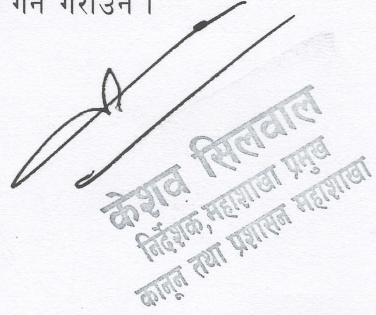 गर्न गराउन ।
केशव सिलवाल
निर्देशक, महाशाखा प्रमुख
कानून तथा प्रशासन महाशाखा